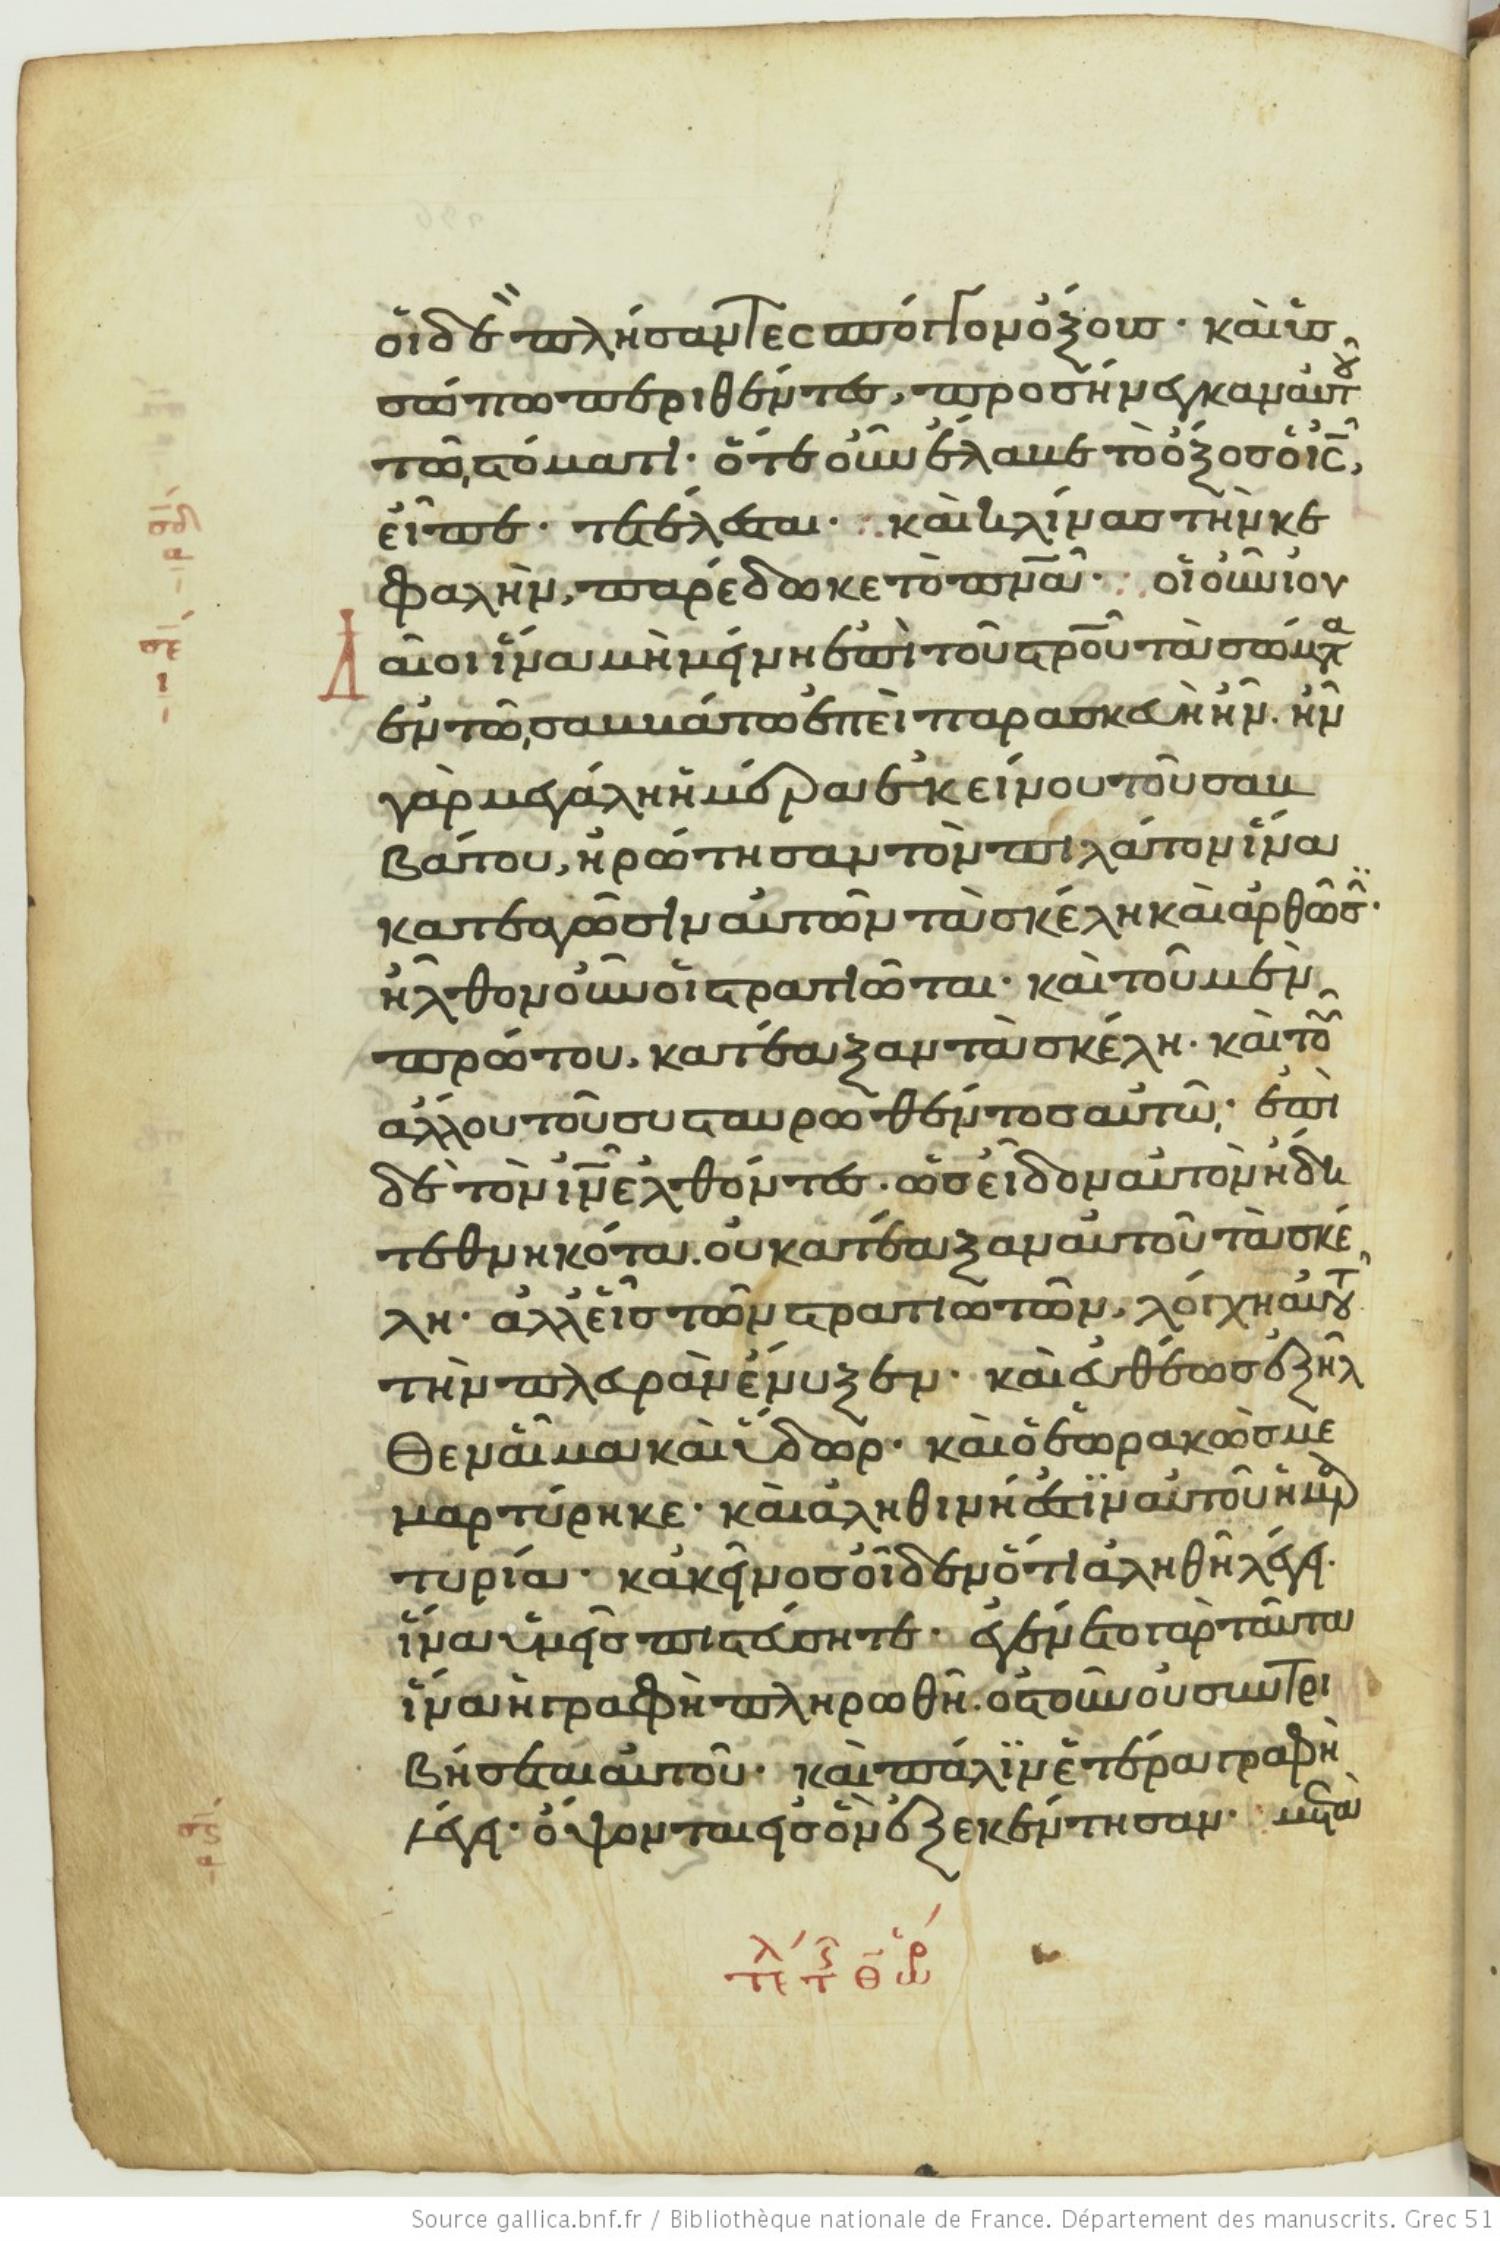 οἱ δὲ πλήσαντες σπόγγον ὄξους· καὶ ὑσ
σώπω περιθέντες, προσήνεγκαν αυτου
τῶ στόματι· ὅτε οὖν ἔλαβε τὸ ὄξος ὁ ις,
εἶπε· τετέλεσται· καὶ κλίνας τὴν κε
φαλὴν, παρέδωκε τὸ πνα· οἱ οὖν ιου
δαῖοι ἵνα μὴ μείνη ἐπὶ τοῦ στρου τὰ σώματα
ἐν τῶ σαββάτω ἐπεὶ παρασκευὴ ἦν. ἦν
γὰρ μεγάλη ἡ ἡμέρα ἐκείνου τοῦ σαβ
βάτου, ἠρώτησαν τὸν πιλάτον ἵνα
κατεαγῶσιν αυτῶν τὰ σκέλη καὶ ἀρθῶσι·
ἦλθον οὖν οἱ στρατιῶται· καὶ τοῦ μὲν
πρώτου, κατέαξαν τὰ σκέλη· καὶ τοῦ
ἄλλου τοῦ συσταυρωθέντος αυτῶ· ἐπὶ
δὲ τὸν ιν ἐλθόντες. ὡς εἶδον αυτὸν ἤδη
τεθνηκότα. οὐ κατέαξαν αυτοῦ τὰ σκέ
λη· ἀλλ' εἷς τῶν στρατιωτῶν, λόγχη αυτοῦ
τὴν πλευρὰν ἔνυξεν· καὶ εὐθέως ἐξῆλ
θεν αἷμα καὶ ὕδωρ· καὶ ὁ ἑωρακὼς με
μαρτύρηκε· καὶ ἀληθινή ἐστϊν αυτοῦ ἡ μαρ
τυρία· κἀκεῖνος οἶδεν ὅτι ἀληθῆ λέγει·
ἵνα ὑμεῖς πιστεύσητε· ἐγένετο γὰρ ταῦτα
ἵνα ἡ γραφὴ πληρωθῆ. ὀστοῦν οὐ συντρι
βήσεται αυτοῦ· καὶ πάλϊν ἑτέρα γραφὴ
λέγει· ὄψονται εἰς ὃν ἐξεκέντησαν· μετὰ